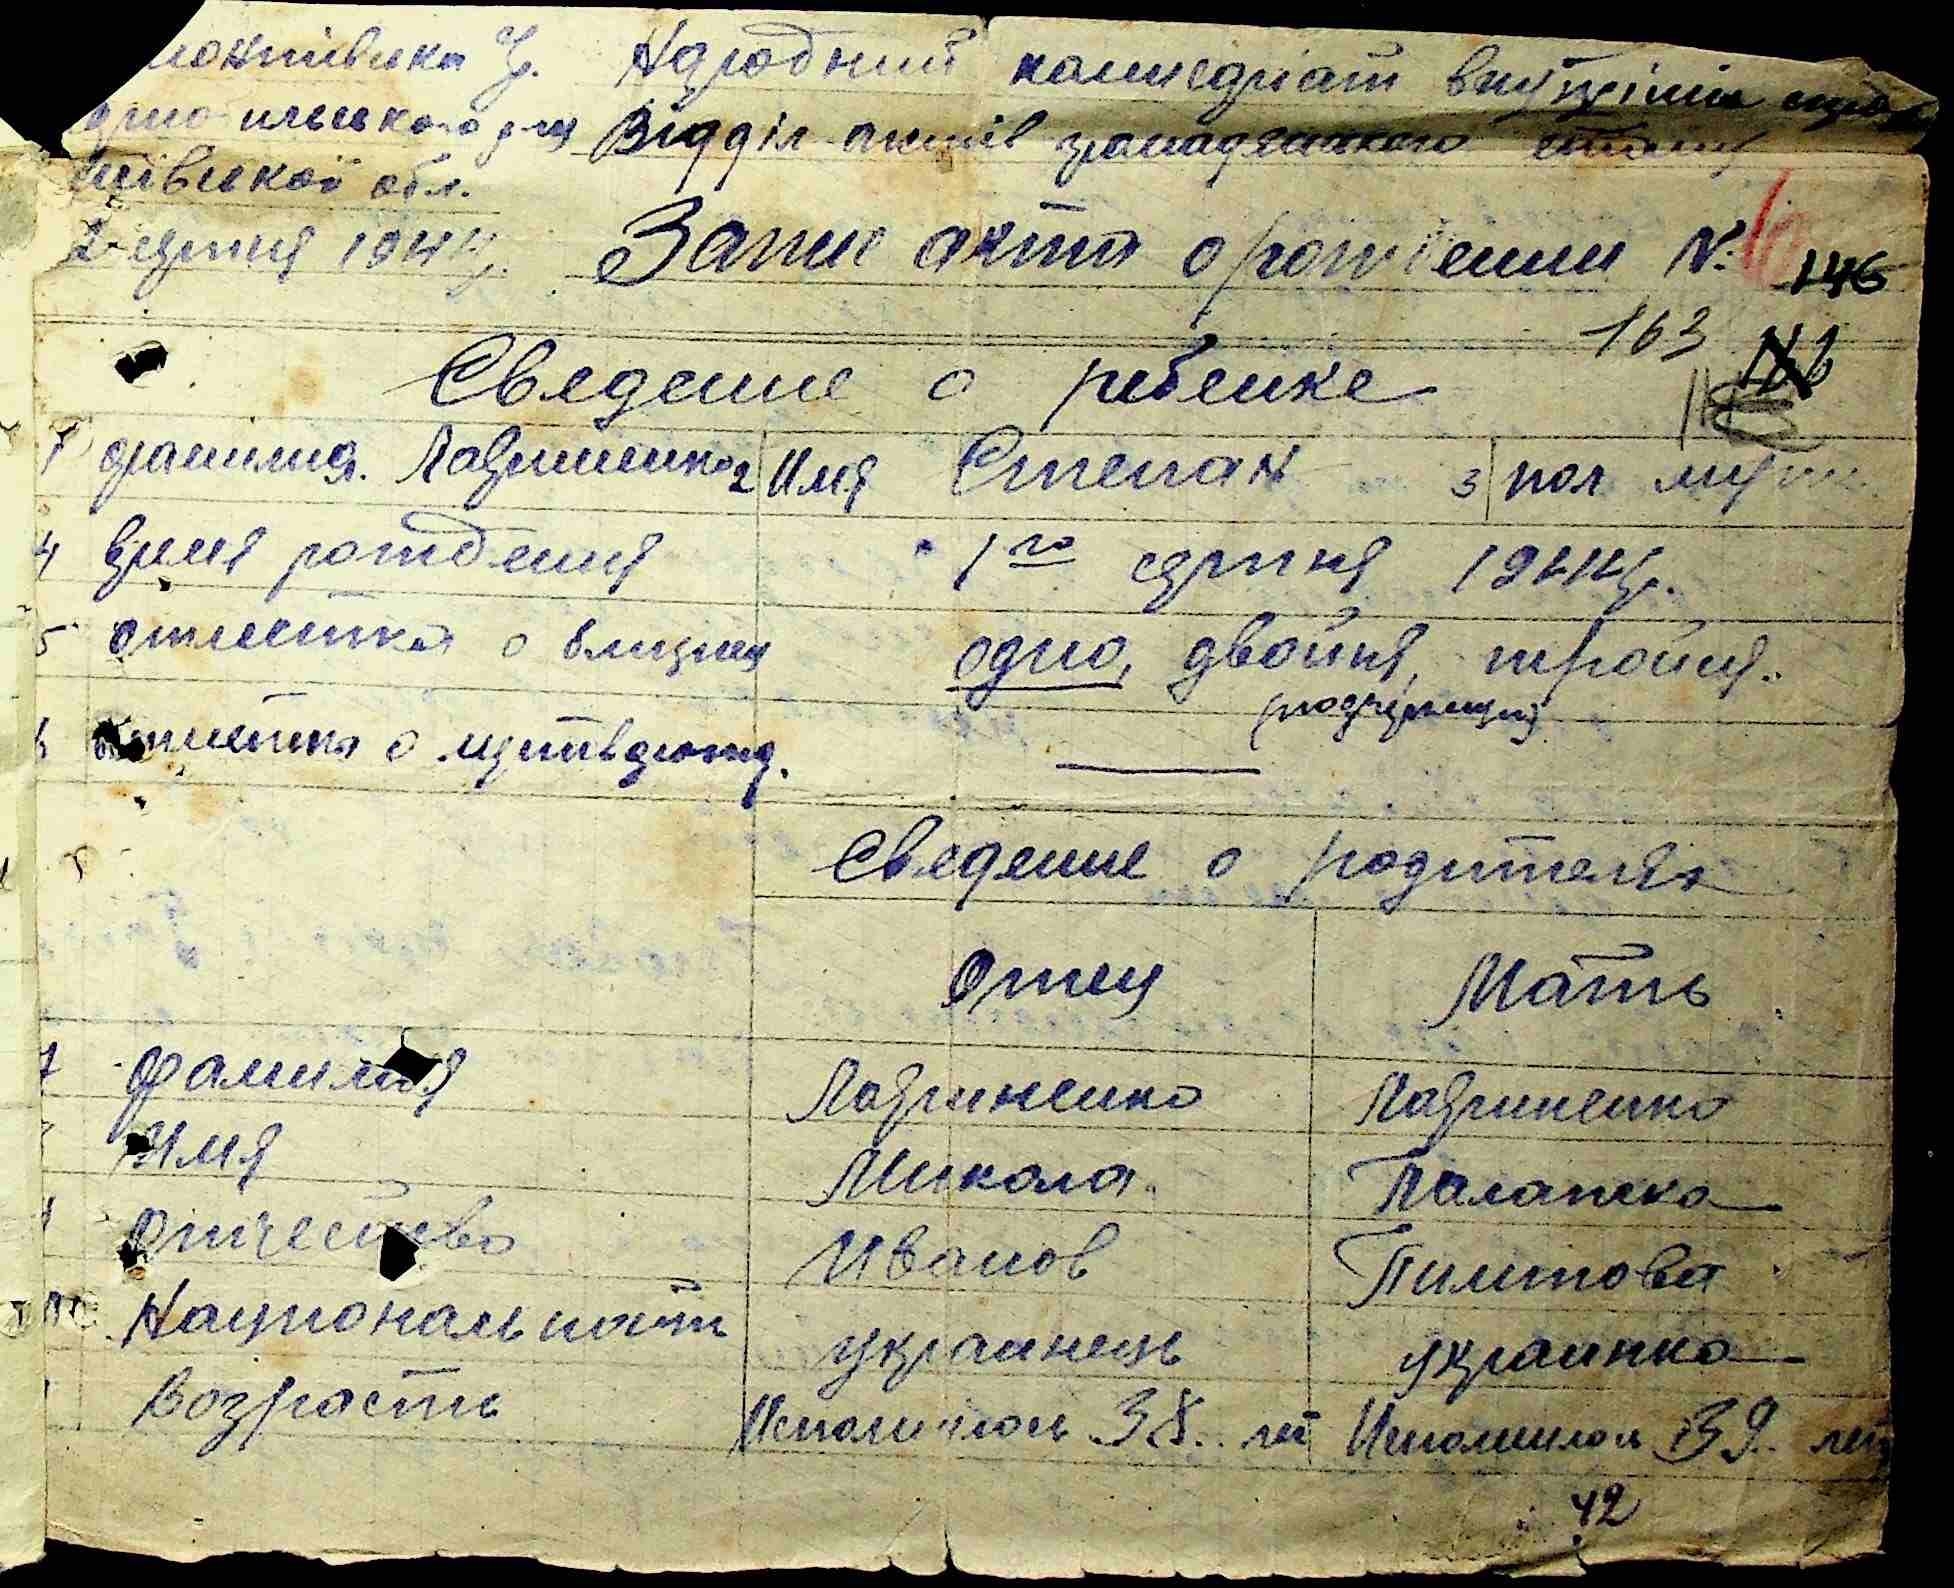 Народний комисаріат внутрішніх справ
Відділ актів громадянського стану
ської обл.
серпня 1944 р. Запис акта о рождении №. 146
163
Сведение о ребенке
1 фамилия. Лавриненко 2 Имя Степан 3 пол муж
4 время рождения 1го серпня 1944 р.
5 отметка о близнец одно, двойня, тройня.
(подчеркнуть)
6 отметка о мертворожд.
Сведение о родителях
Отец Мать
7 фамилия Лавриненко Лавриненко
Имя Микола Палажка
Отчество Иванов Пилипова
Национальность украинець украинка
Возрасть Исполнилось 38. лет Исполнилось 39. лет
42